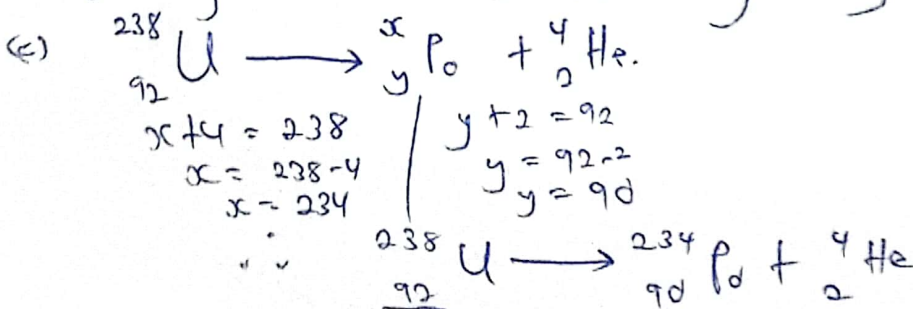 (c) ²³⁸₉₂U ⟶ ˣᵧPo + ⁴₂He.
x+4 = 238 | y+2 = 92
x = 238-4 | y = 92-2
x = 234 | y = 90
∴ ²³⁸₉₂U ⟶ ²³⁴₉₀Po + ⁴₂He